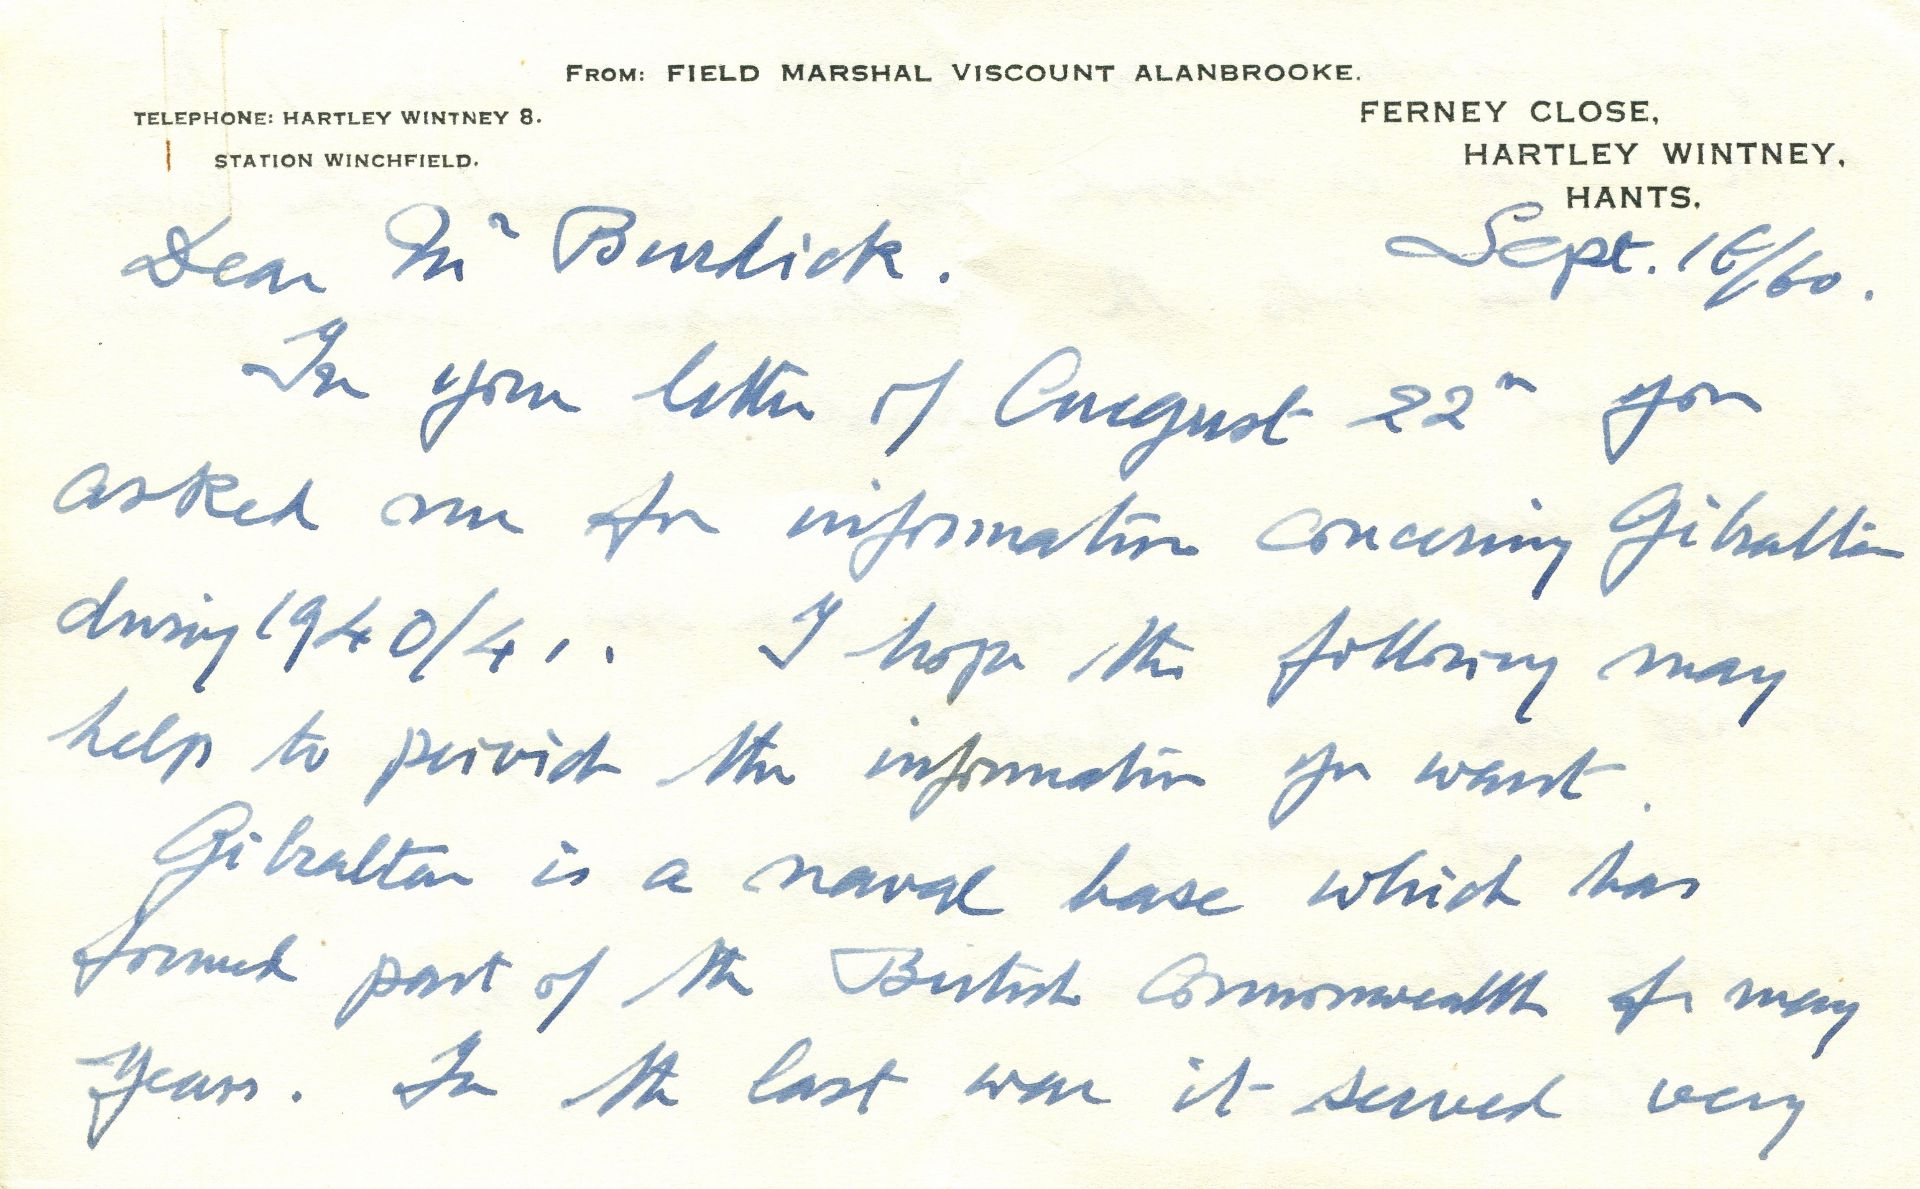 FROM: FIELD MARSHAL VISCOUNT ALANBROOKE.
TELEPHONE: HARTLEY WINTNEY 8.
STATION WINCHFIELD.
FERNEY CLOSE,
HARTLEY WINTNEY,
HANTS.
Sept. /60.
Dear Mr Burdick.
In your letter of August 22n you
asked me for information concerning Gibraltar
during 1940/41. I hope the following may
help to provide the information you want.
Gibraltar is a naval base which has
formed part of the British Commonwealth for many
years. In the last war it served very